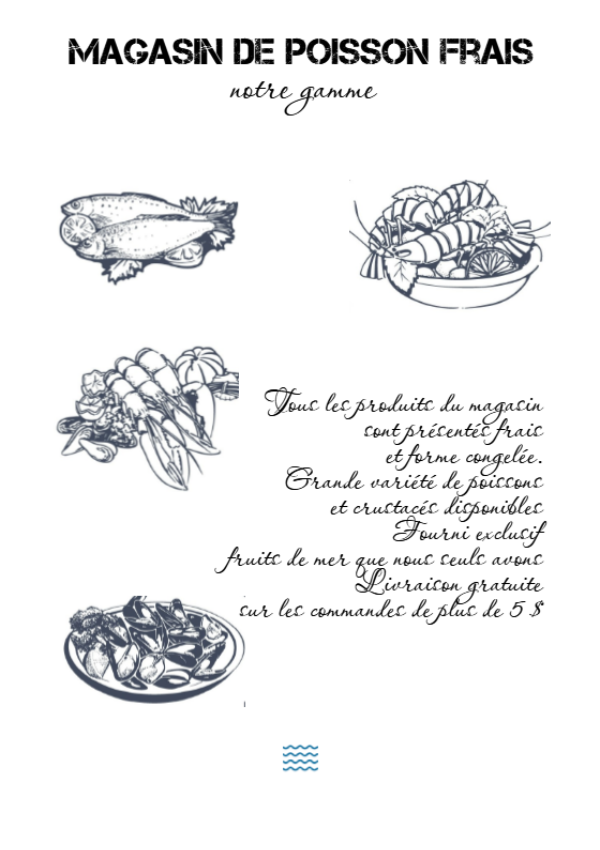 MAGASIN DE POISSON FRAIS
notre gamme
Tous les produits du magasin
sont présentés frais
et forme congelée.
Grande variété de poissons
et crustacés disponibles
Fourni exclusif
fruits de mer que nous seuls avons
Livraison gratuite
sur les commandes de plus de 5 $